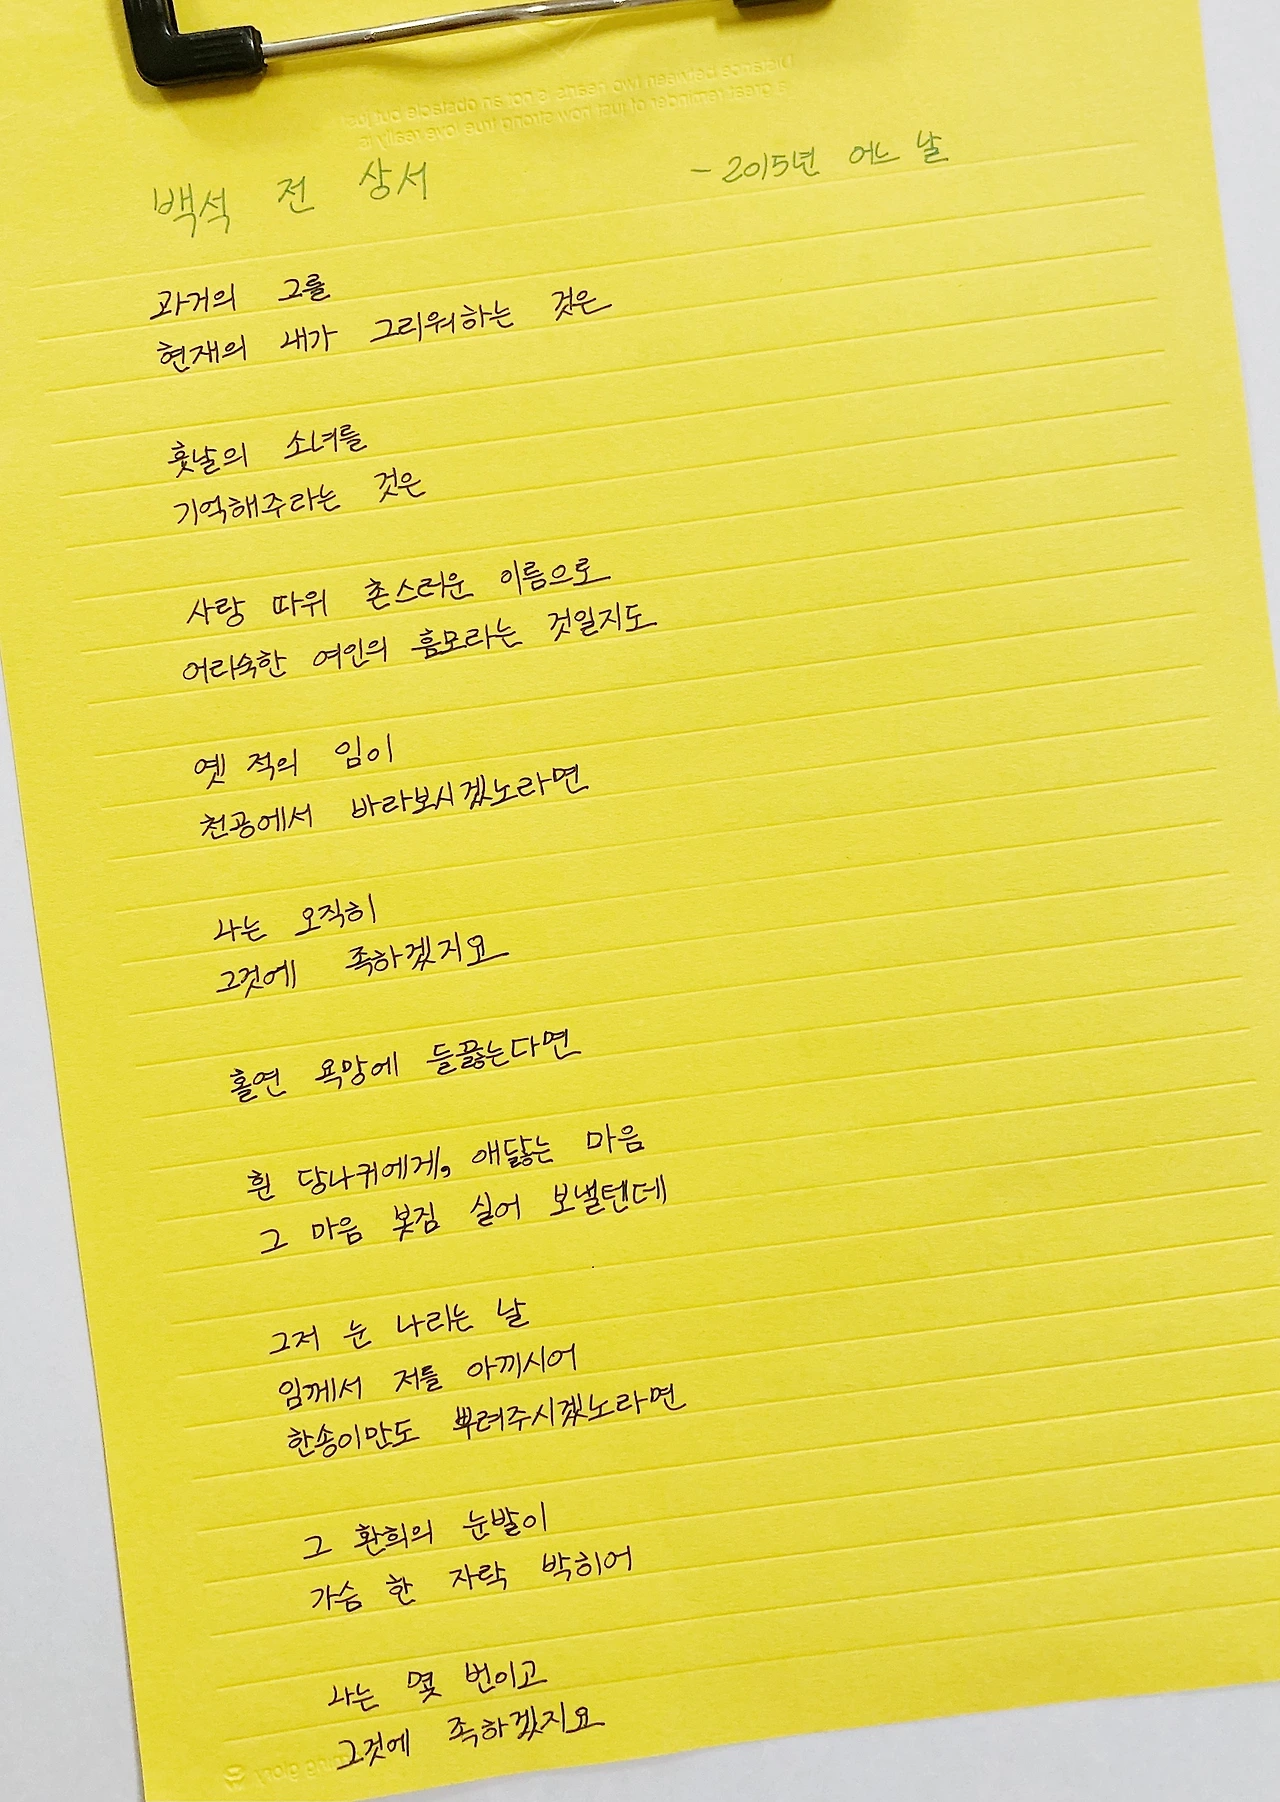 Distance between two hearts is not an obstacle but just
a great reminder of just how strong true love really is
백석 전 상서 - 2015년 어느 날
과거의 그를
현재의 내가 그리워하는 것은
훗날의 소녀를
기억해주라는 것은
사랑 따위 촌스러운 이름으로
어리숙한 여인의 흠모라는 것일지도
옛 적의 임이
천공에서 바라보시겠노라면
나는 오직히
그것에 족하겠지요
홀연 욕망에 들끓는다면
흰 당나귀에게, 애닳는 마음
그 마음 봇짐 실어 보낼텐데
그저 눈 나리는 날
임께서 저를 아끼시어
한송이만도 뿌려주시겠노라면
그 환희의 눈발이
가슴 한 자락 박히어
나는 몇 번이고
그것에 족하겠지요
glory